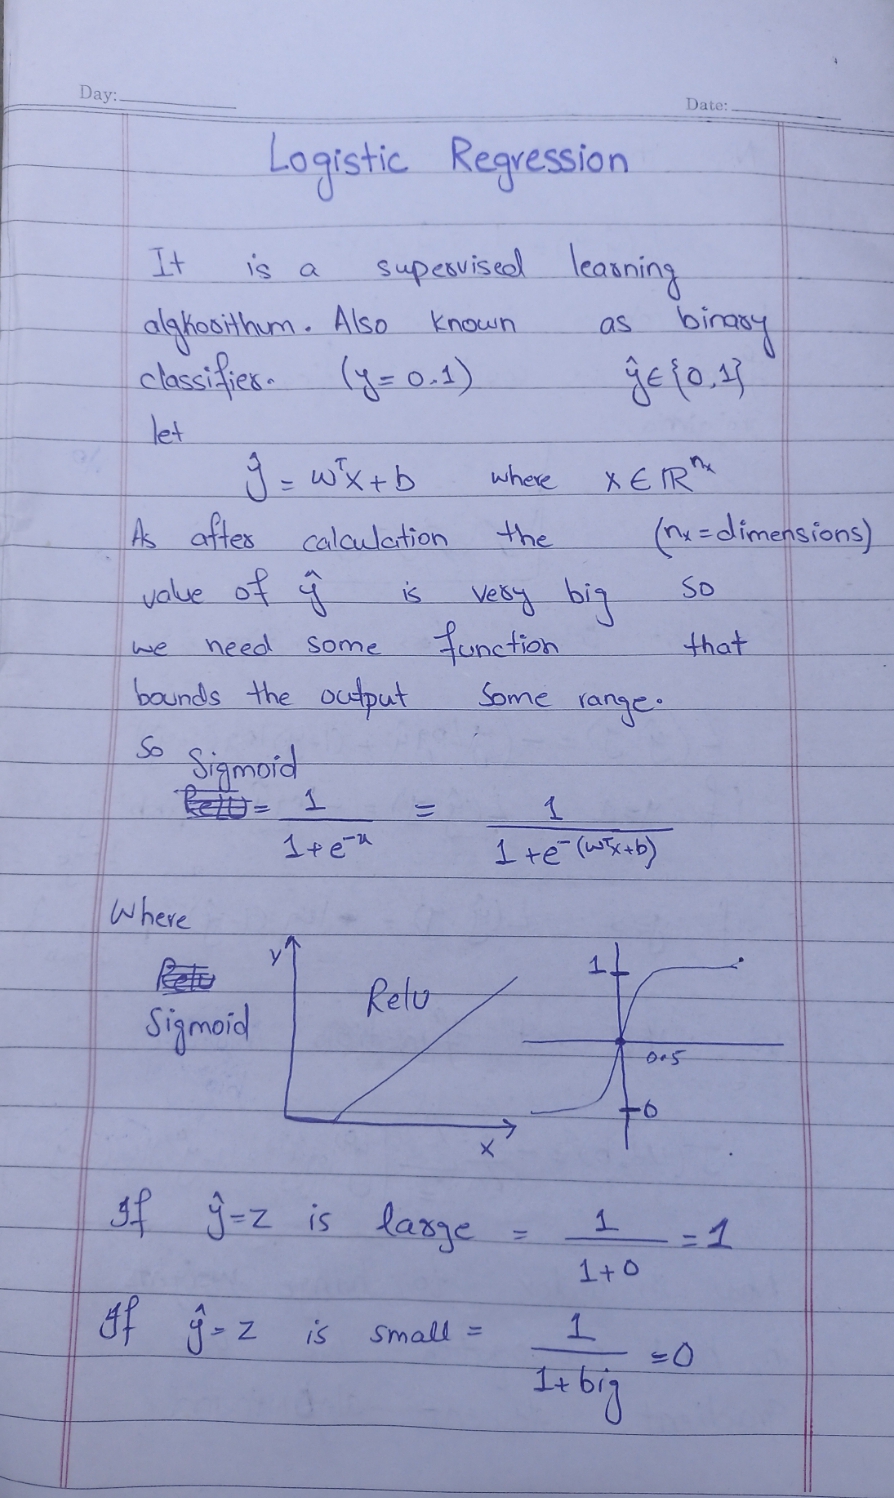 Day:
Date:
Logistic Regression
It is a supervised learning
algkoorithum. Also known as binary
classifier. (y=0.1) ŷ∈{0,1}
let
ŷ = wᵀx+b where x ∈ ℝⁿˣ
As after calculation the (nx=dimensions)
value of ŷ is very big so
we need some function that
bounds the output some range.
So Sigmoid
Relu = 1/(1+e⁻ˣ) = 1/(1+e^-(wᵀx+b))
Where
Relu
Sigmoid
y
Relu
x
1
0.5
0
If ŷ=z is large = 1/(1+0) = 1
If ŷ=z is small = 1/(1+big) = 0